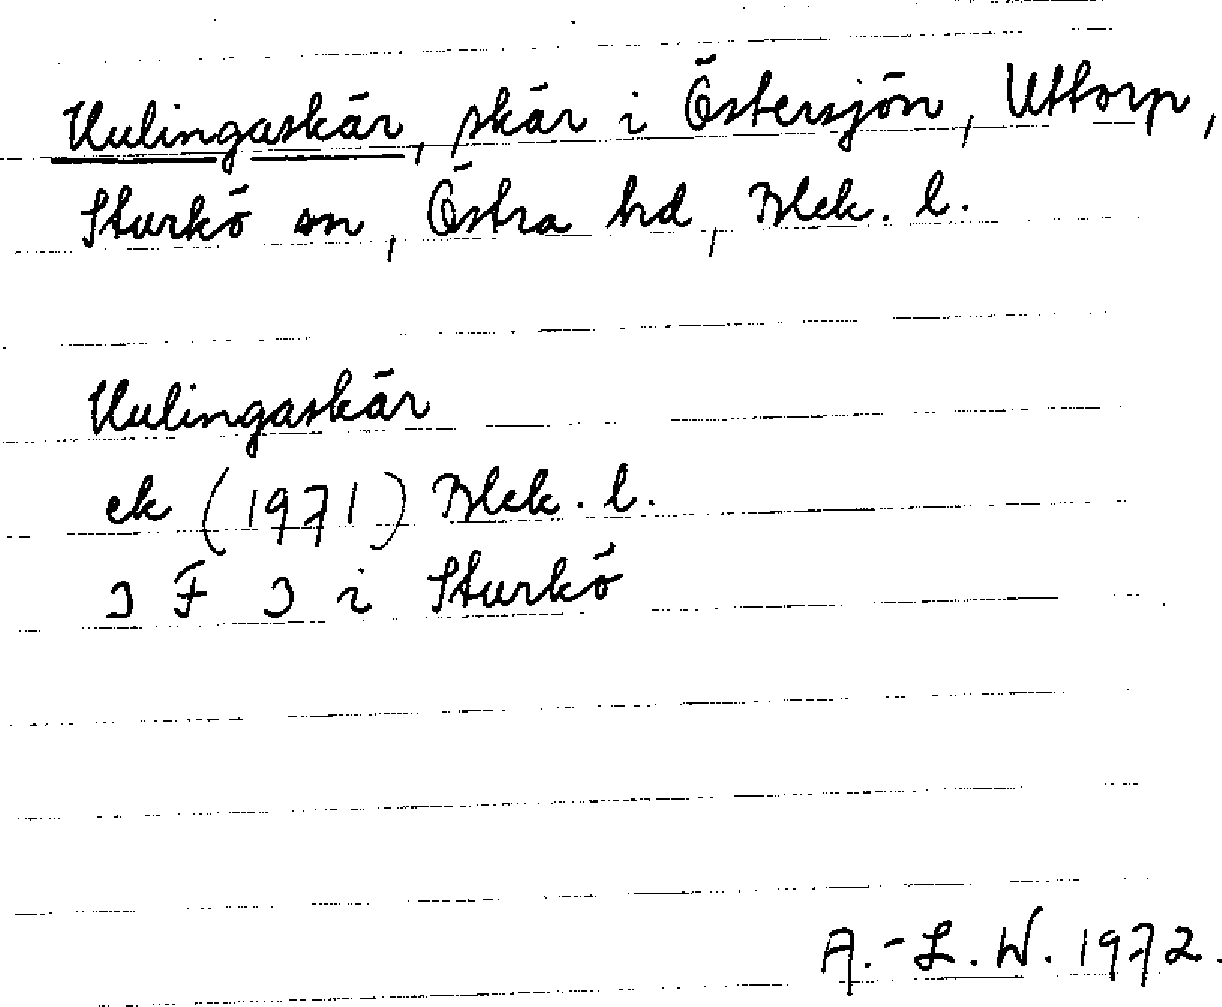 Kulingaskär, skär i Östersjön, Uttorp,
Sturkö sn, Östra hd, Blek. l.
Kulingaskär
ek (1971) Blek. l.
3 F 3 i Sturkö
A.-L.W. 1972.